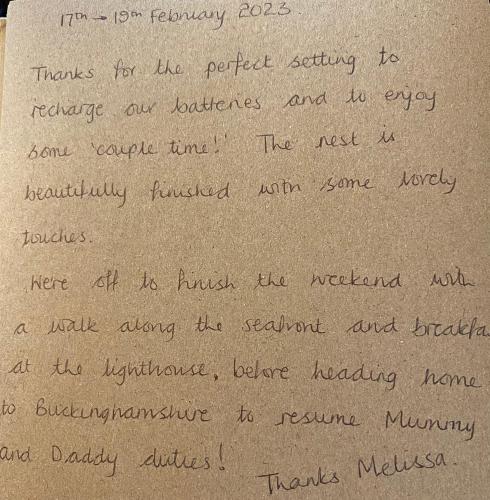 17th → 19th February 2023.
Thanks for the perfect setting to
recharge our batteries and to enjoy
some 'couple time!' The nest is
beautifully finished with some lovely
touches.
We're off to finish the weekend with
a walk along the seafront and breakfa
at the lighthouse, before heading home
to Buckinghamshire to resume Mummy
and Daddy duties!
Thanks Melissa.